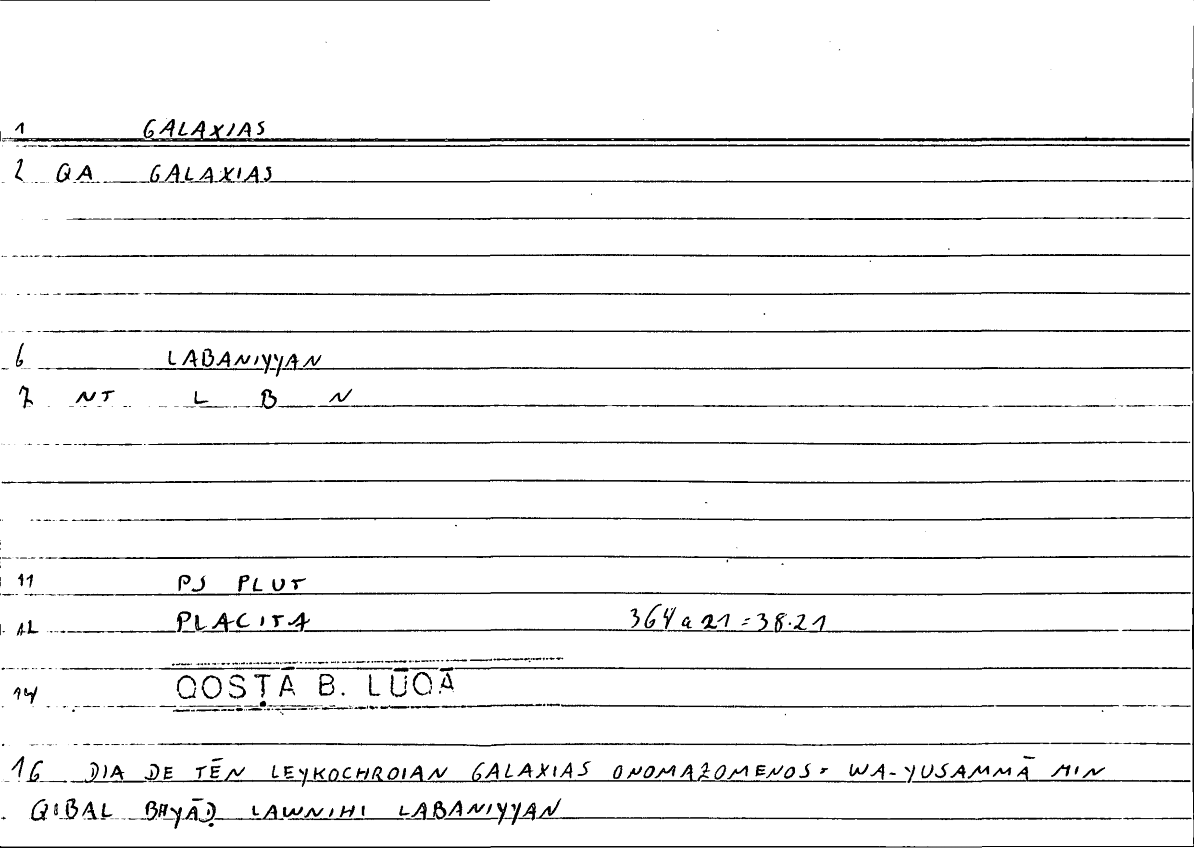 1 GALAXIAS
2 QA GALAXIAS
6 LABANIYYAN
7 NT L B N
11 PS PLUT
12 PLACITA 364a21=38.21
14 QOSṬĀ B. LŪQĀ
16 DIA DE TĒN LEYKOCHROIAN GALAXIAS ONOMAZOMENOS = WA-YUSAMMĀ MIN
QIBAL BAYĀḌ LAWNIHI LABANIYYAN